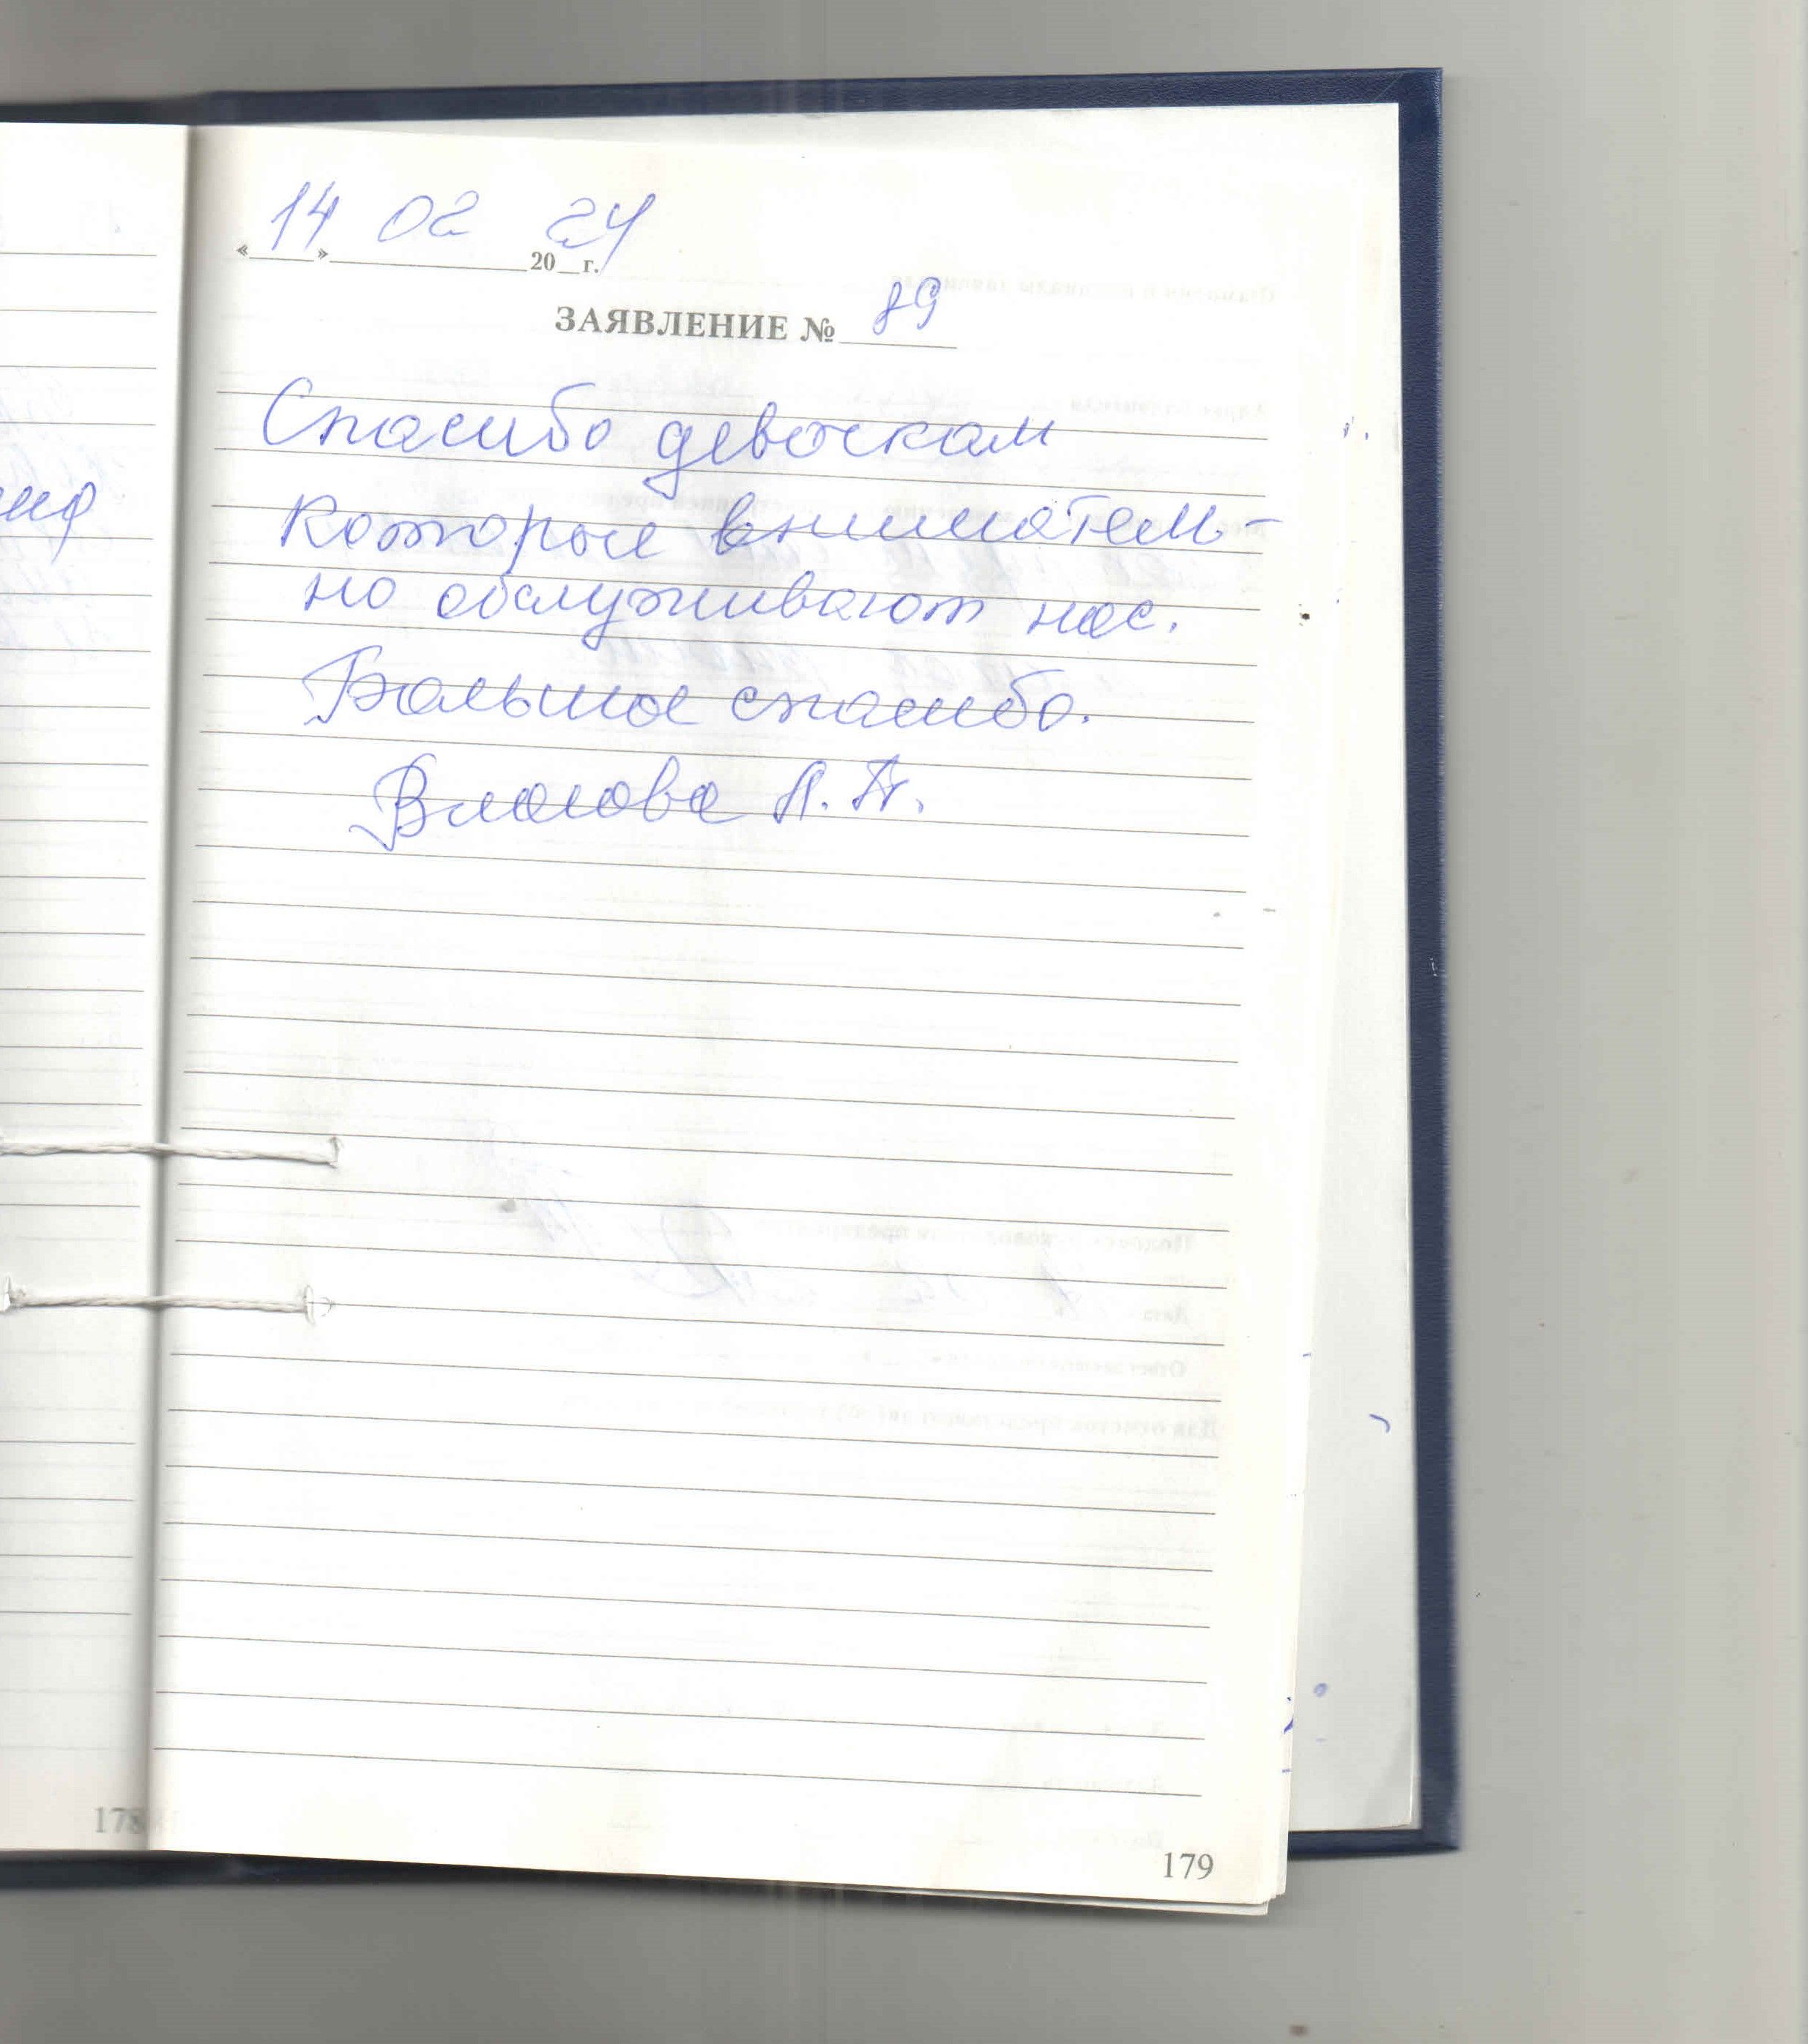 14 02 24
« » 20 г.
ЗАЯВЛЕНИЕ № 89
Спасибо девочкам
которые вниматель-
но обслуживают нас.
Большое спасибо.
А. А.
178
179